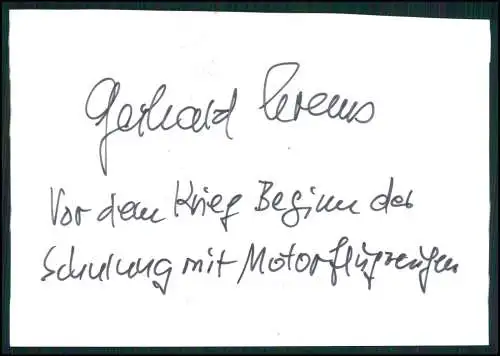 Gerhard Krems
Vor dem Krieg Beginn der
Schulung mit Motorflugzeugen